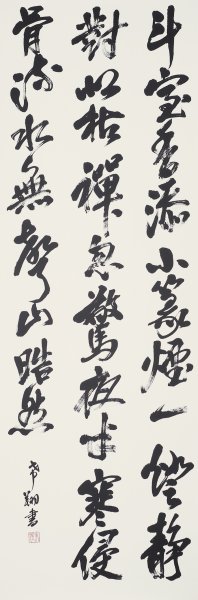 斗室香添小篆煙一燈靜
對似枯禪忽驚夜半寒侵
骨流水無聲山晧然
翔書